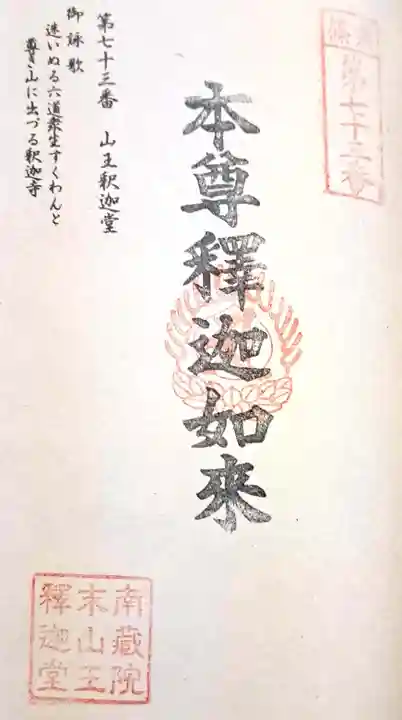 第七十三番
本尊釋迦如來
第七十三番 山王釈迦堂
御詠歌
迷いぬる六道衆生すくわんと
尊き山に出づる釈迦寺
南藏院
末山王
釋迦堂